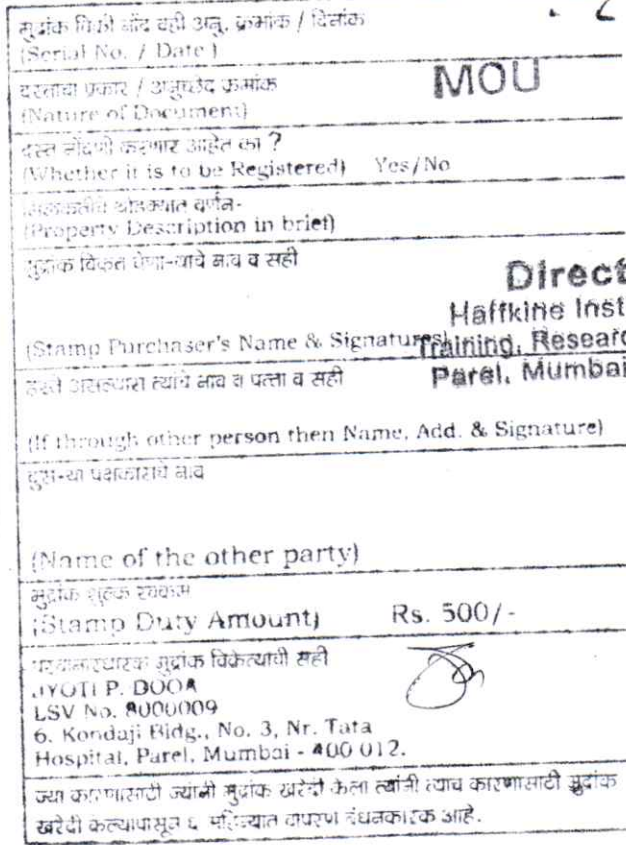 मुद्रांक विक्री नोंद वही अनु. क्रमांक / दिनांक
(Serial No. / Date)
दस्ताचा प्रकार / अनुच्छेद क्रमांक
MOU
(Nature of Document)
दस्त नोंदणी करणार आहेत का ?
(Whether it is to be Registered) Yes/No
मिळकतीचे थोडक्यात वर्णन-
(Property Description in brief)
मुद्रांक विकत घेणा-याचे नाव व सही
Direct
Haffkine Inst
(Stamp Purchaser's Name & Signatures)
Training, Researc
हस्ते असल्यास त्यांचे नाव व पत्ता व सही
Parel, Mumbai
(If through other person then Name, Add. & Signature)
दुस-या पक्षकाराचे नाव
(Name of the other party)
मुद्रांक शुल्क रक्कम
(Stamp Duty Amount) Rs. 500/-
परवानाधारक मुद्रांक विक्रेत्याची सही
JYOTI P. DOOA
LSV No. 8000009
6. Kondaji Bldg., No. 3, Nr. Tata
Hospital, Parel, Mumbai - 400 012.
ज्या कारणासाठी ज्यांनी मुद्रांक खरेदी केला त्यांनी त्याच कारणासाठी मुद्रांक
खरेदी केल्यापासून ६ महिन्यात वापरणे बंधनकारक आहे.